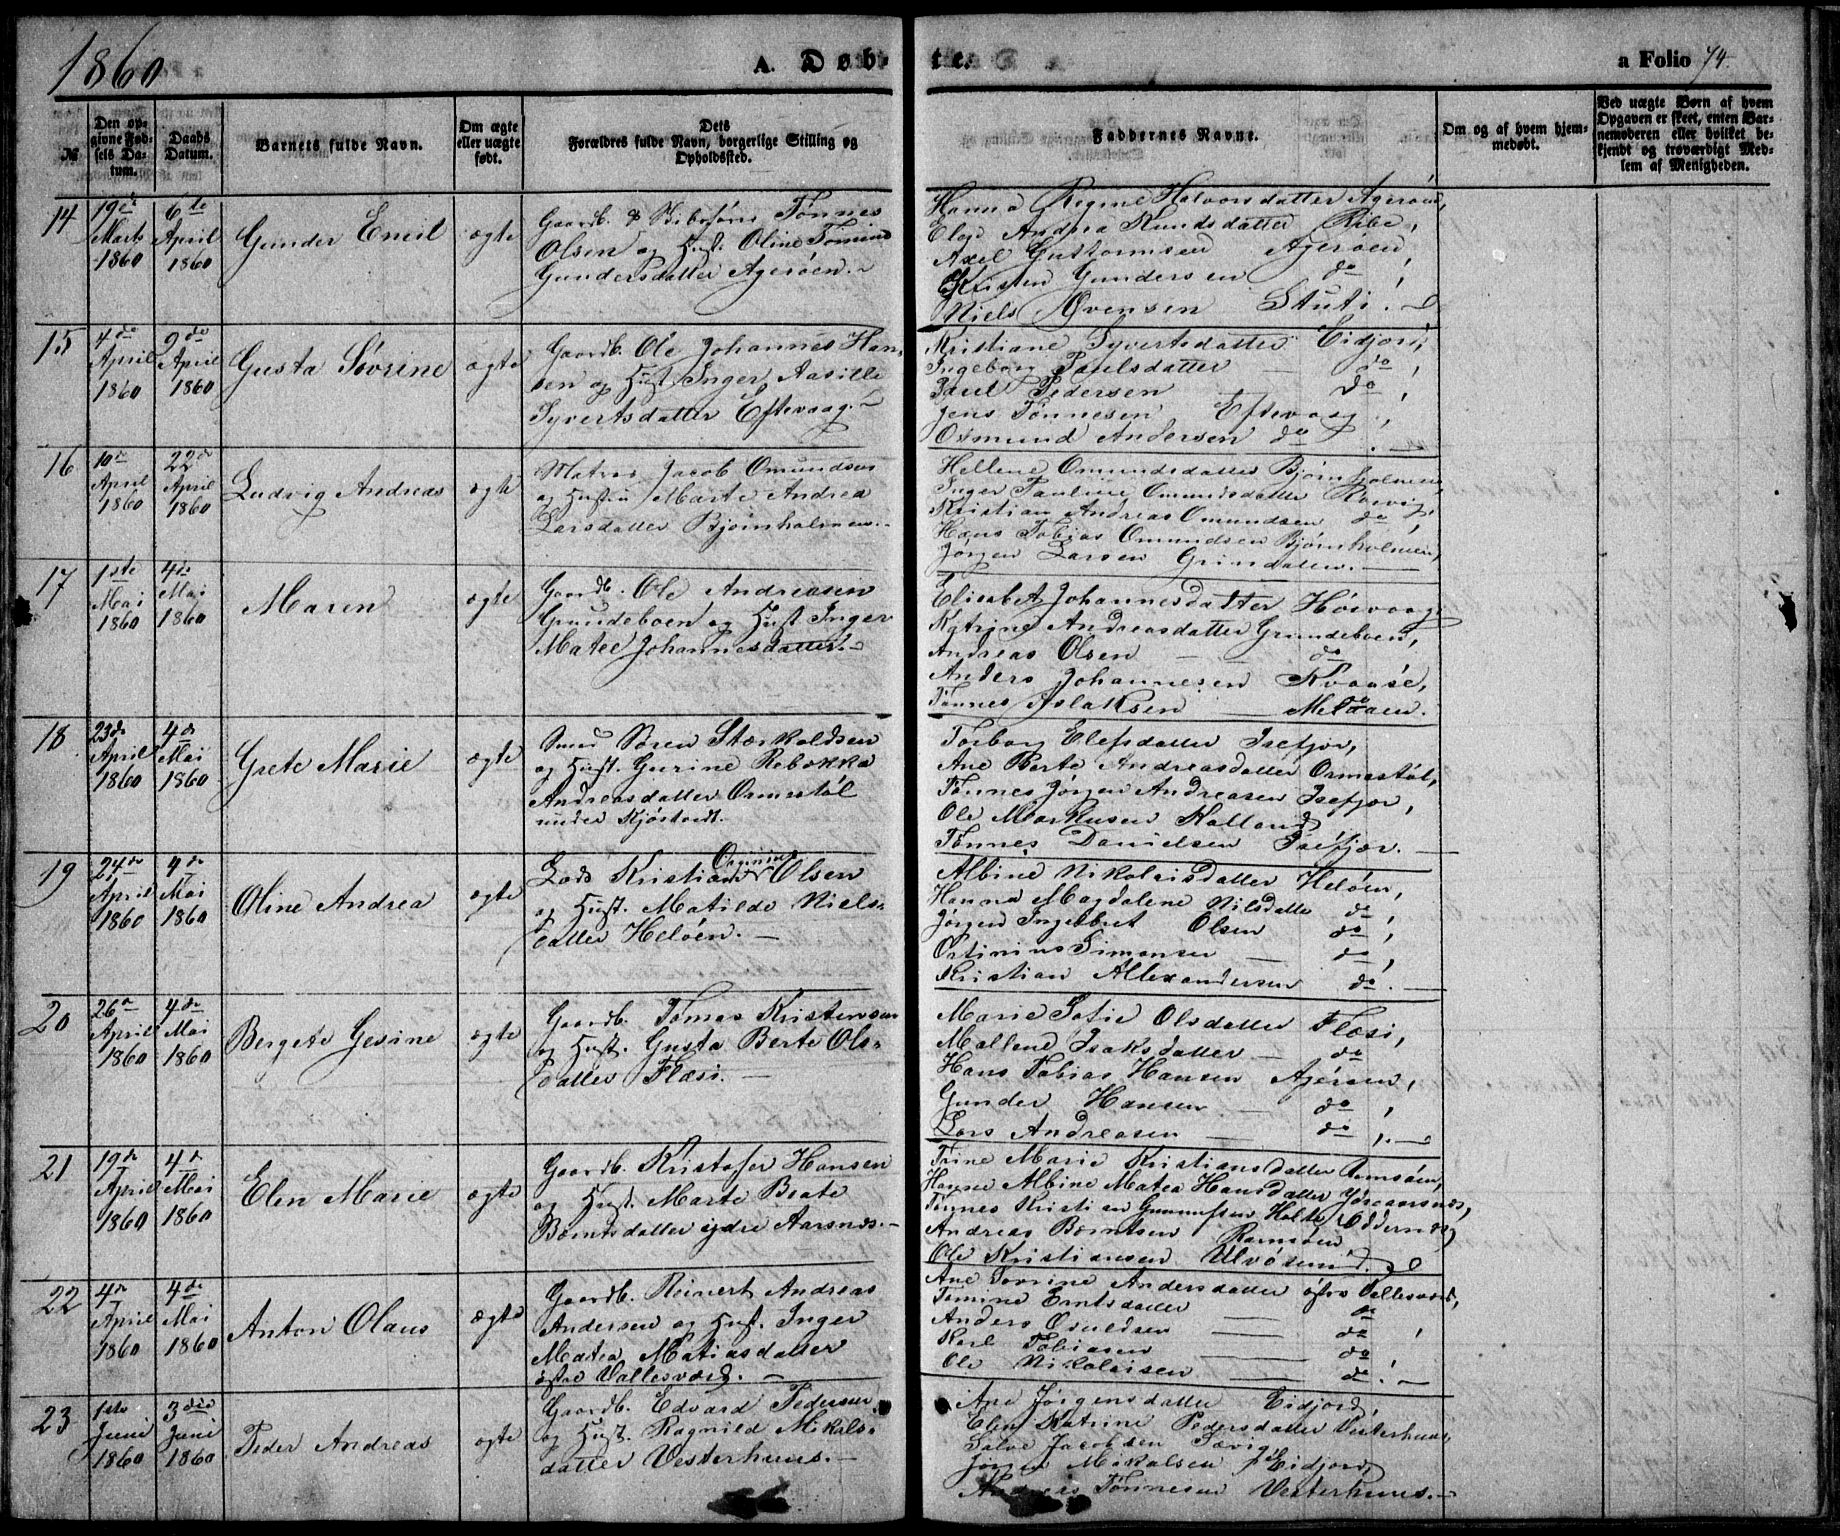 1860
A. Døb-
te.
a Folio 74.
№
Den op-
givne Fød-
sels Da-
tum.
Daabs
Datum.
Barnets fulde Navn.
Om ægte
eller uægte
født.
Dets
Forældres fulde Navn, borgerlige Stilling og
Opholdssted.
Faddernes Navne.
Om og af hvem hjem-
medøbt.
Ved uægte Børn af hvem
Opgaven er skeet, enten Bar-
nemoderen eller hvilket be-
kjendt og troværdigt Med-
lem af Menigheden.
14
19de
Marts
1860
6te
April
1860
Gunder Emil
ægte
Gaardb. & Skibsfører Tønnes
Olsen og Hust. Oline Tomine
Gundersdatter Agerøen.
Hanna Regine Halvorsdatter Agerøen,
Andrea Knudsdatter Ribe,
Axel Guttormsen Agerøen,
Kristen Gundersen do,
Niels Evensen Stuti.
15
4de
April
1860
9de
April
1860
Gusta Sovrine
ægte
Gaardb. Ole Johannes Han-
sen og Hust. Inger Aasille
Syvertsdatter Eftevaag.
Kristiane Syvertsdatter Eidjord,
Ingeborg Paulsdatter do,
Paul Pedersen do,
Jens Tønnesen Eftevaag,
Osmund Andersen do.
16
10de
April
1860
22de
April
1860
Ludvig Andreas
ægte
Matros Jacob Omundsen
og Hustru Marte Andrea
Larsdatter Bjørnholmen.
Hellene Omundsdatter Bjørnholmen,
Inger Pauline Omundsdatter
Kristian Andreas Omundsen do,
Hans Tobias Omundsen Bjørnholmen,
Jørgen Larsen Grindalen.
17
1ste
Mai
1860
4de
Mai
1860
Maren
ægte
Gaardb. Ole Andreasen
Grundeboen og Hust. Inger
Matee Johannesdatter.
Elisabet Johannesdatter Høvaag,
Katrine Andreasdatter Grundeboen,
Andreas Olsen do
Anders Johannesen Kvaase,
Tønnes Aslaksen
18
23de
April
1860
4de
Mai
1860
Grete Marie
ægte
Smed Søren Stærkoldsen
og Hust. Gurine Rebækka
Andreasdatter Ormestøl
under Kjøstvedt.
Torborg Elefsdatter Isefjær,
Ane Berte Andreasdatter Ormestøl,
Tønnes Jørgen Andreasen Isefjær,
Ole Markusen Kalland,
Tønnes Danielsen Isefjær.
19
24de
April
1860
4de
Mai
1860
Oline Andrea
ægte
Lods Kristian Olsen
og Hust. Matilde Niels-
datter Heløen.
Albine Nikolaisdatter Heløen,
Hanna Magdalene Nilsdatter do,
Jørgen Ingebret Olsen do,
Ortinius Simonsen do,
Kristian Allexandersen do.
20
26de
April
1860
4de
Mai
1860
Bergete Gesine
ægte
Gaardb. Tomas Kristensen
og Hust. Gusta Berte Ols-
datter Flæsi.
Marie Sofie Olsdatter Flæsi,
Mallene Isaksdatter do
Hans Tobias Hansen Agerøen,
Gunder Hansen do,
Lars Andreasen do.
21
19de
April
1860
4de
Mai
1860
Elen Marie
ægte
Gaardb. Kristofer Hansen
og Hust. Marte Beate
Berntsdatter ydre Aarsnes.
Trine Marie Kristiansdatter Ramsøen,
Hanne Albine Matea Hansdatter
Tønnes Kristian Gunnufsen Holte Oddernes,
Andreas Berntsen Ramsøen,
Ole Kristiansen Ulvøsund.
22
4de
April
1860
4de
Mai
1860
Anton Olaus
ægte
Gaardb. Reinert Andreas
Andersen og Hust. Inger
Matea Matiasdatter
østre Vallesværd.
Ane Sovrine Andersdatter østre Vallesværd,
Tomine Erntsdatter do
Anders Osuldsen do,
Karl Tobiasen do
Ole Nikolaisen do.
23
1ste
Juni
1860
3die
Juni
1860
Peder Andreas
ægte
Gaardb. Edvard Pedersen
og Hust. Ragnild Mikals-
datter Vesterhuus.
Ane Jørgensdatter Eidjord,
Elen Katrine Pedersdatter Vesterhuus,
Salve Jacobsen Sævig,
Jørgen Mikalsen Eidjord,
Andreas Tønnesen Vesterhuus.